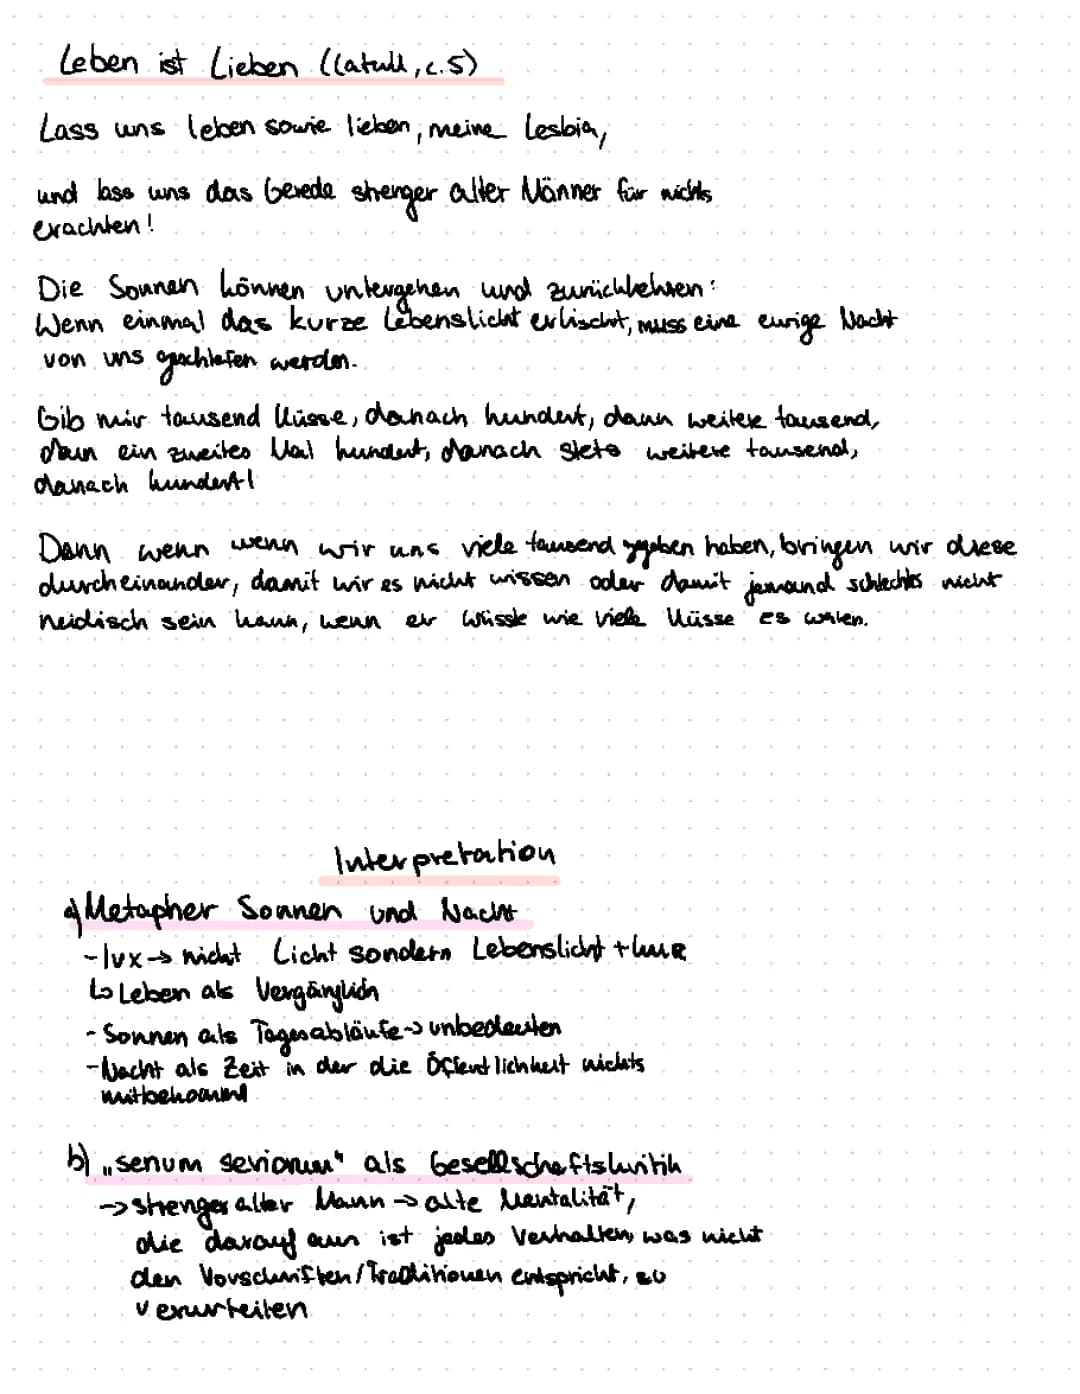 Leben ist Lieben (Catull, c.5)
Lass uns leben sowie lieben, meine Lesbia,
und lass uns das Gerede strenger alter Männer für nichts
erachten!
Die Sonnen können untergehen und zurückkehren:
Wenn einmal das kurze Lebenslicht erlischt, muss eine ewige Nacht
von uns geschlafen werden.
Gib mir tausend Küsse, danach hundert, dann weitere tausend,
dann ein zweites Mal hundert, danach stets weitere tausend,
danach hundert!
Dann wenn wenn wir uns viele tausend gegeben haben, bringen wir diese
durcheinander, damit wir es nicht wissen oder damit jemand schlechtes nicht
neidisch sein kann, wenn er wüsste wie viele Küsse es waren.
Interpretation
a) Metapher Sonnen und Nacht
- lux → nicht Licht sondern Lebenslicht + kurz
↳ Leben als Vergänglich
- Sonnen als Tagesabläufe → unbedeuten
- Nacht als Zeit in der die Öffentlichkeit nichts
mitbekommt
b) „senum severiorum" als Gesellschaftskritik
→ strenger alter Mann → alte Mentalität,
die darauf aus ist jedes Verhalten, was nicht
den Vorschriften/Traditionen entspricht, zu
verurteilen